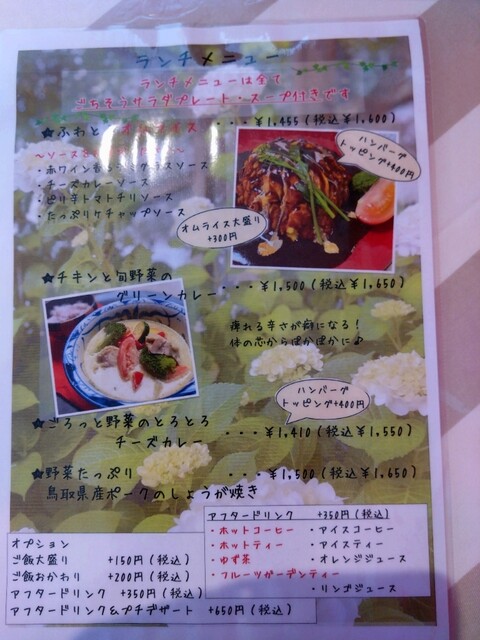 ランチメニュー
ランチメニューは全て
ごちそうサラダプレート・スープ付きです
★ふわとろオムライス ・・・¥1,455(税込¥1,600)
・チーズカレーソース
・ピリ辛トマトチリソース
・たっぷりケチャップソース
ハンバーグ
トッピング+400円
オムライス大盛り
+300円
★チキンと旬野菜の
グリーンカレー・・・¥1,500(税込¥1,650)
痺れる辛さが癖になる!
体の芯からぽかぽかに♪
ハンバーグ
トッピング+400円
★ごろっと野菜のとろとろ
チーズカレー ・・・¥1,410(税込¥1,550)
★野菜たっぷり ・・・¥1,500(税込¥1,650)
鳥取県産ポークのしょうが焼き
オプション
ご飯大盛り +150円(税込)
ご飯おかわり +200円(税込)
アフタードリンク +350円(税込)
アフタードリンク&プチデザート +650円(税込)
アフタードリンク +350円(税込)
・ホットコーヒー ・アイスコーヒー
・ホットティー ・アイスティー
・ゆず茶 ・オレンジジュース
・フルーツガーデンティー
・リンゴジュース